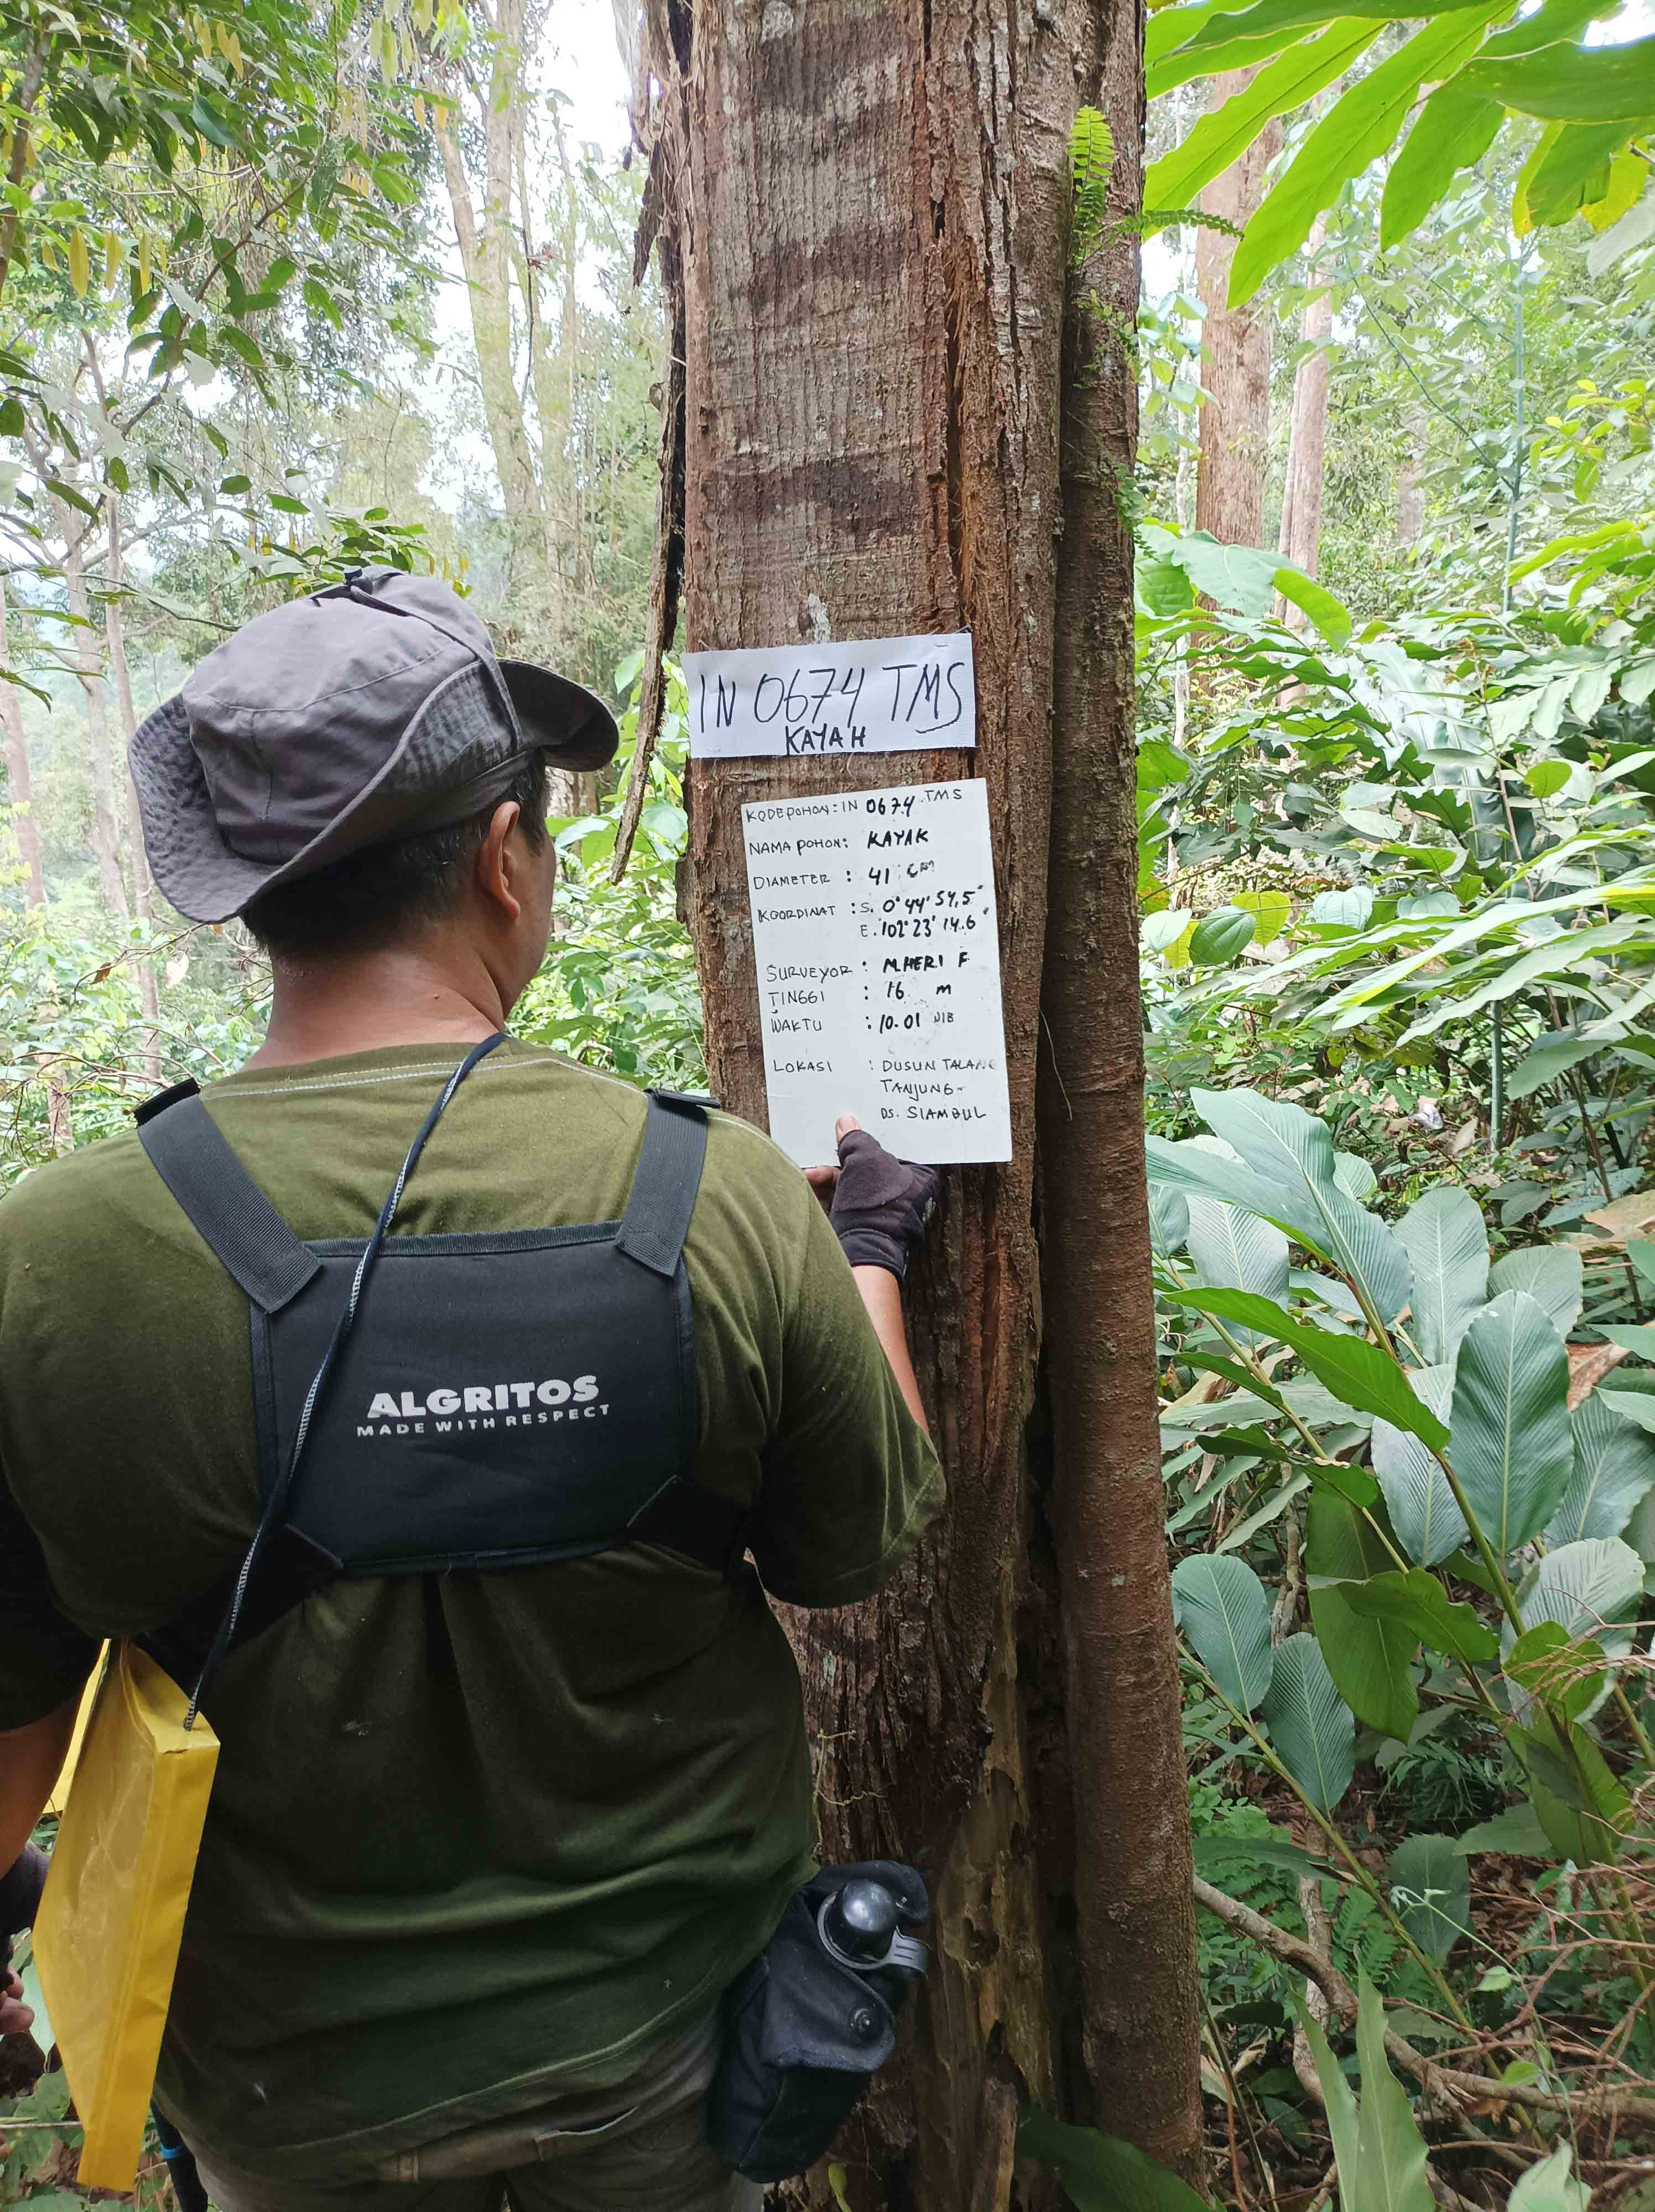 IN 0674 TMS
KAYAH
KODE POHON : IN 0674 TMS
NAMA POHON : KAYAK
DIAMETER : 41 CM
KOORDINAT : S. 0° 44' 54,5"
E. 102° 23' 14.6"
SURVEYOR : M.HERI F
TINGGI : 16 m
WAKTU : 10.01 WIB
LOKASI : DUSUN TALANG
TANJUNG
DS. SIAMBUL
ALGRITOS
MADE WITH RESPECT